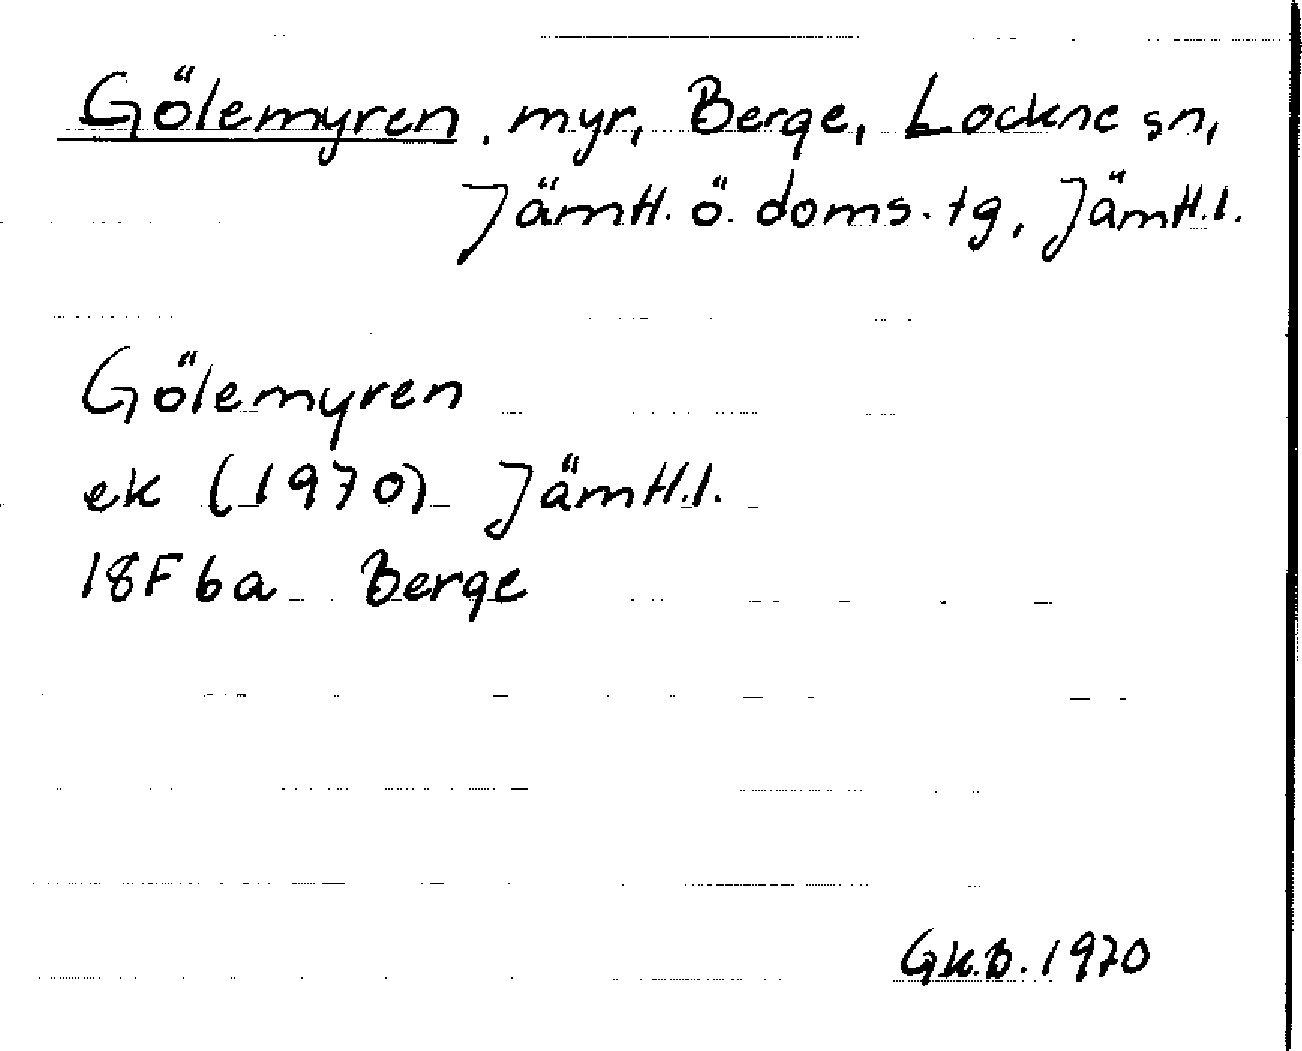 Gölemyren, myr, Berge, Lockne sn,
Jämtl. ö. doms. tg, Jämtl. l.
Gölemyren
ek (1970) Jämtl. l.
18F 6a Berge
GKB. 1970